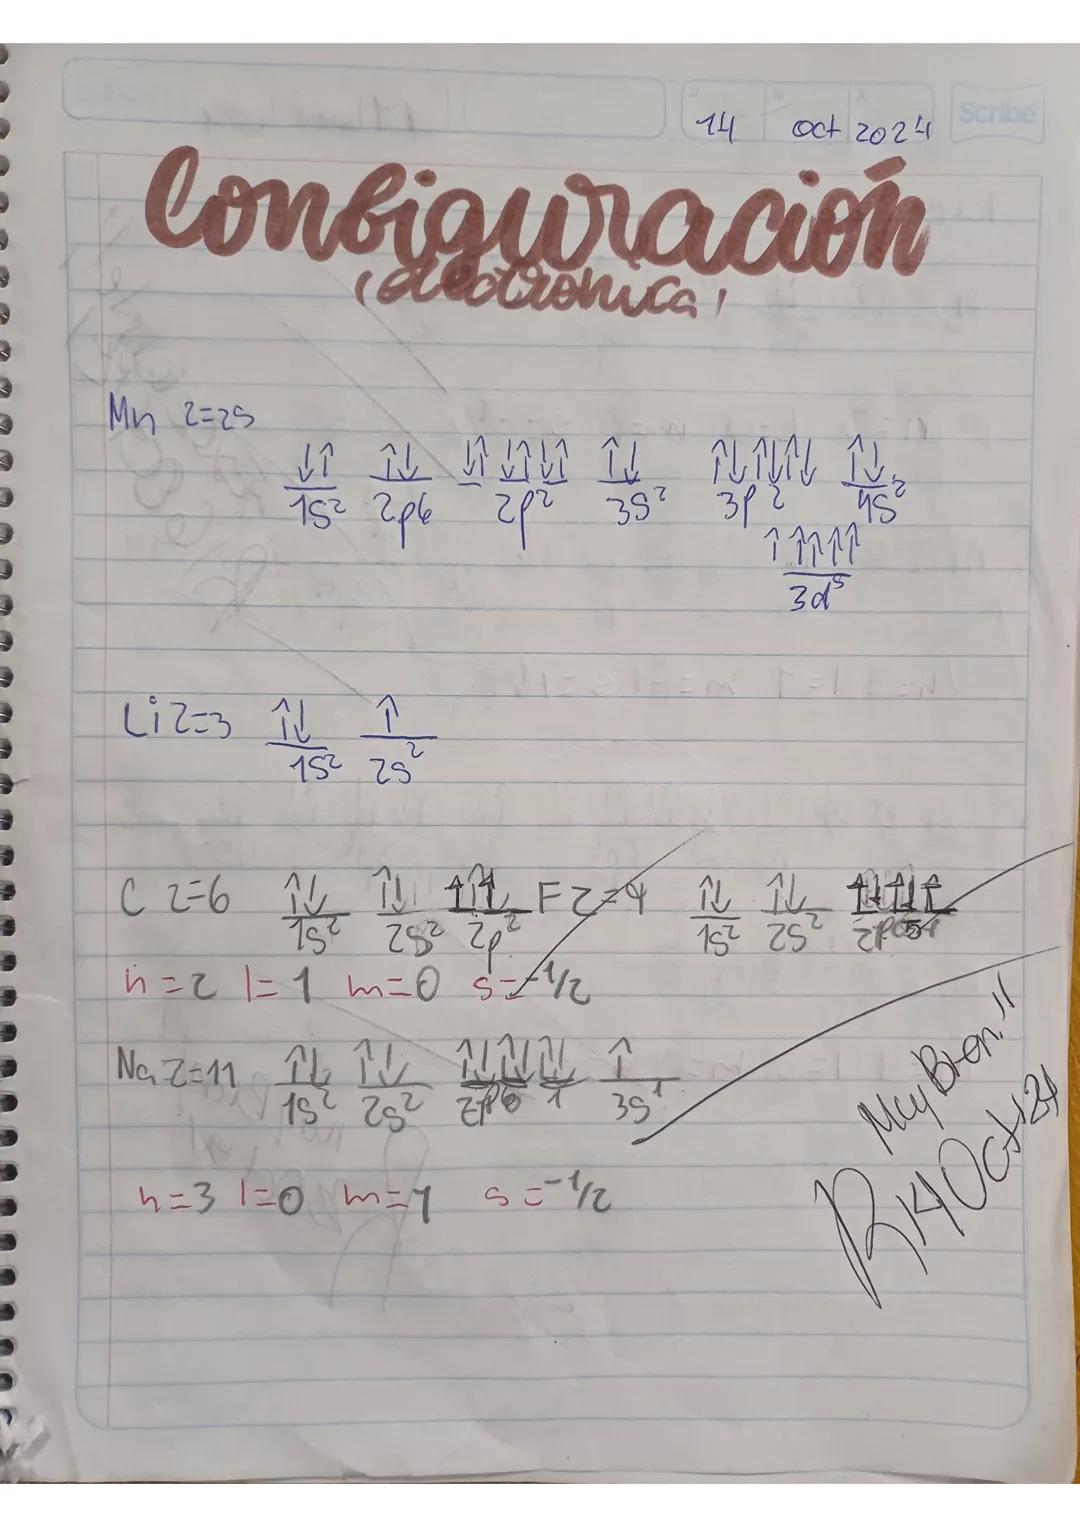 14 oct 2024 Scribe
Configuración
(electronica)
Mn Z=25
↓↑ ↑↓ ↓↑ ↓↑ ↓↑ ↑↓ ↑↓ ↑↓ ↑↓ ↑↓
1s² 2p6 2p² 3s² 3p² 4s²
↑ ↑ ↑ ↑ ↑
3d⁵
Li Z=3 ↑↓ ↑
1s² 2s²
C Z=6 ↑↓ ↑↓ F Z=9 ↑↓ ↑↓
1s² 2s² 2p² 1s² 2s²
n=2 l=1 m=0 s=-1/2
Na Z=11 ↑↓ ↑↓ ↑↓ ↑↓ ↑↓ ↑
1s² 2s² 2p6 3s¹
n=3 l=0 m=1 s=-1/2
Muy Bien!!
R 14Oct24